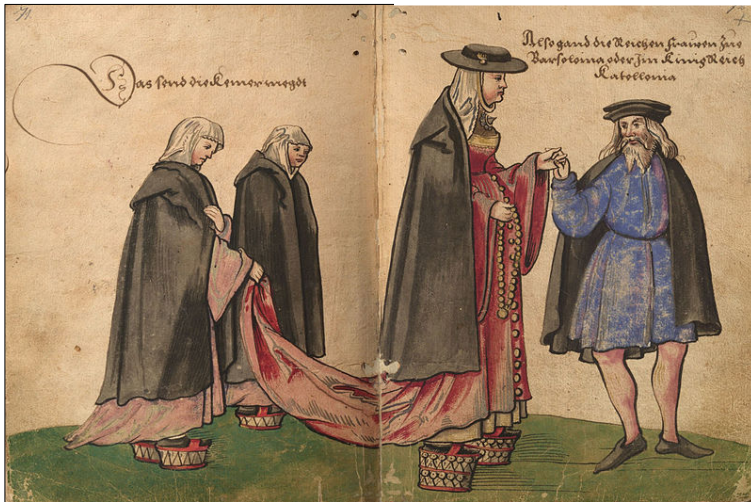 Das send die Kemer megdt
Also gand die Reichen frauwen Zue
Barsolonia oder Im Künig Reich
Katollonia